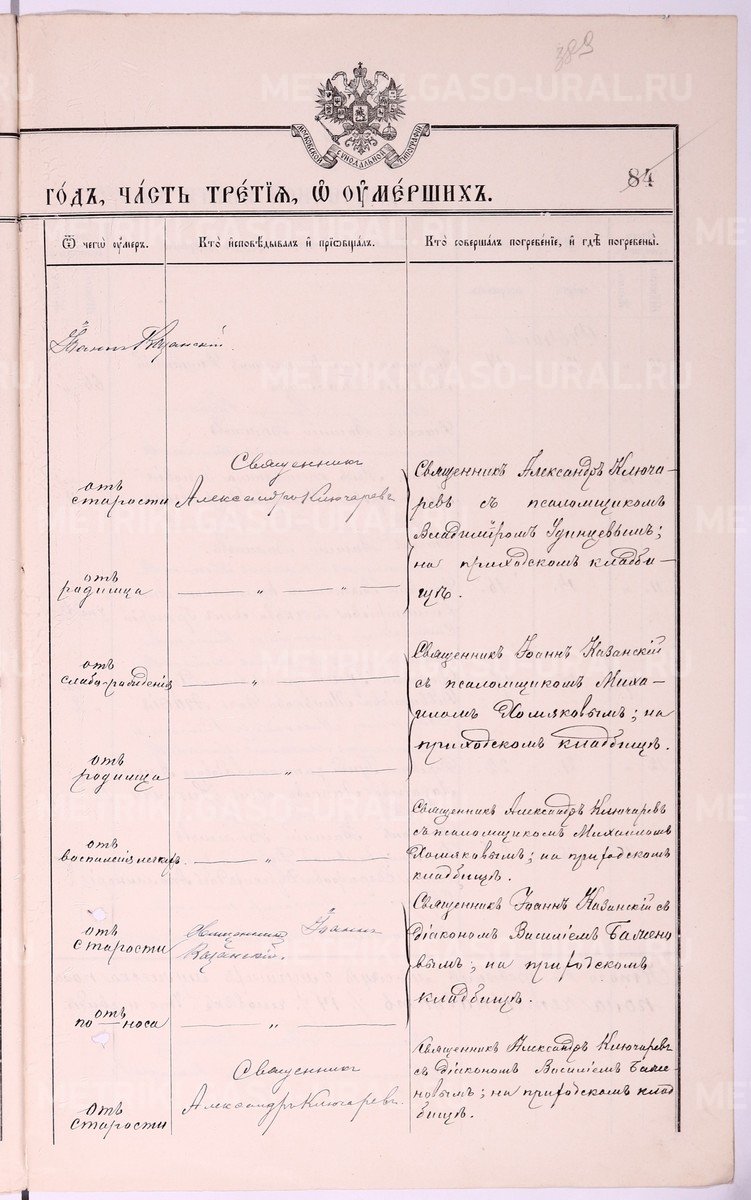 389
МОСКОВСКОЙ СѴНОДАЛЬНОЙ ТИПОГРАФІИ
84
ГО́ДЪ, ЧА́СТЬ ТРЕ́ТІѦ, Ѡ҆ ОУ҆МЕ́РШИХЪ.
Ѿ чегѡ̀ оу҆́меръ.
Кто̀ и҆сповѣ́дывалъ и҆ прїѡбща́лъ.
Кто̀ соверша́лъ погребе́нїе, и҆ гдѣ̀ погребены̀.
Іоаннъ Казанскій.
отъ
старости
Священникъ
Александръ Ключаревъ
Священникъ Александръ Ключа-
ревъ съ псаломщикомъ
Владиміромъ Удинцевымъ;
на приходскомъ кладби-
щѣ.
отъ
родимца
— „ — „ —
отъ
слабо-рожденія
— „ —
Священникъ Іоаннъ Казанскій
съ псаломщикомъ Миха-
иломъ Хомяковымъ; на
приходскомъ кладбищѣ.
отъ
родимца
— „ —
отъ
воспаленія легкихъ
— „ —
Священникъ Александръ Ключаревъ
съ псаломщикомъ Михаиломъ
Хомяковымъ; на приходскомъ
кладбищѣ.
отъ
старости
Священникъ Іоаннъ
Казанскій.
Священникъ Іоаннъ Казанскій съ
діакономъ Василіемъ
на приходскомъ
кладбищѣ.
отъ
по—носа
— „ —
отъ
старости
Священникъ
Александръ Ключаревъ.
Священникъ Александръ Ключаревъ
съ діакономъ Василіемъ
на приходскомъ клад
бищѣ.
METRIKI.GASO-URAL.RU